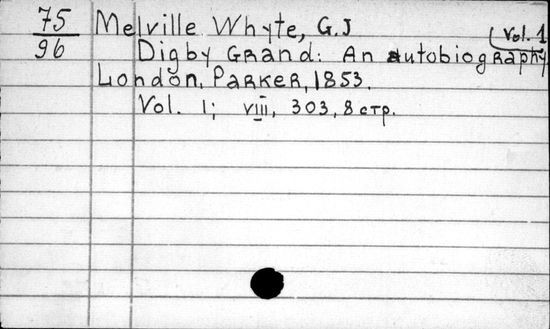 75
96
Melville Whyte, G.J
Vol. 1
Digby Grand: An autobiography
London, Parker, 1853.
Vol. 1; viii, 303, 8 стр.